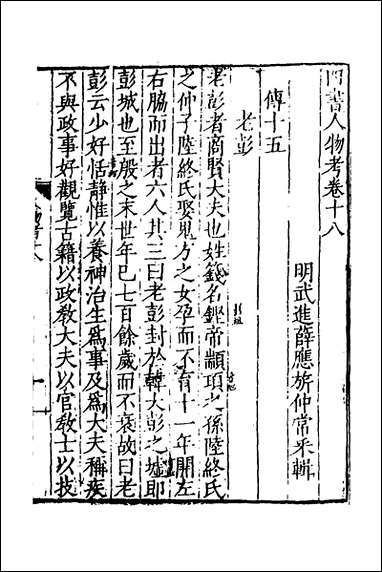 四書人物考卷十八
明武進薛應旂仲常采輯
傳十五
老彭
老彭者商賢大夫也姓籛名鏗帝顓頊之孫陸終氏
之仲子陸終氏娶鬼方之女孕而不育十一年開左
右脇而出者六人其三曰老彭封於韓大彭之墟即
彭城也至殷之末世年巳七百餘歲而不衰故曰老
彭云少好恬靜惟以養神治生爲事及爲大夫稱疾
不與政事好觀覽古籍以政教大夫以官教士以技